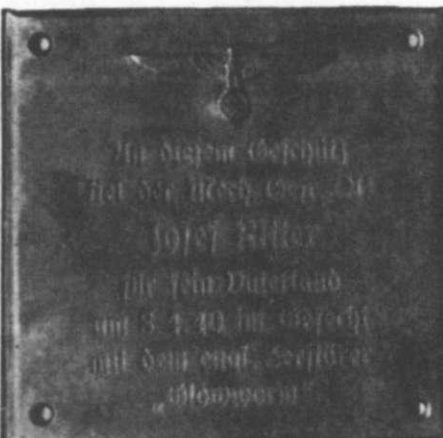 An diesem Geschütz
fiel der Mech. Gefr.
Josef Ritter
für sein Vaterland
am 8.4.40 im Gefecht
mit dem engl. Zerstörer
„Glowworm“